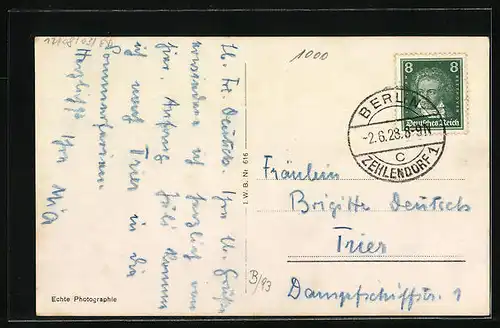 Lb. Frl. Deutsch, Ihre lb. Grüße
erwiedere ich herzlich von
hier. Anfang Juli komme
ich nach Trier in die
Sommerferien.
Herzlichst Ihre Mia
1000
8 8
Deutsches Reich
BERLIN
-2.6.28.8-9N
C
ZEHLENDORF 1
I.W.B. Nr. 616
Fräulein
Brigitte Deutsch
Trier
Dampfschiffstr. 1
B/93
Echte Photographie